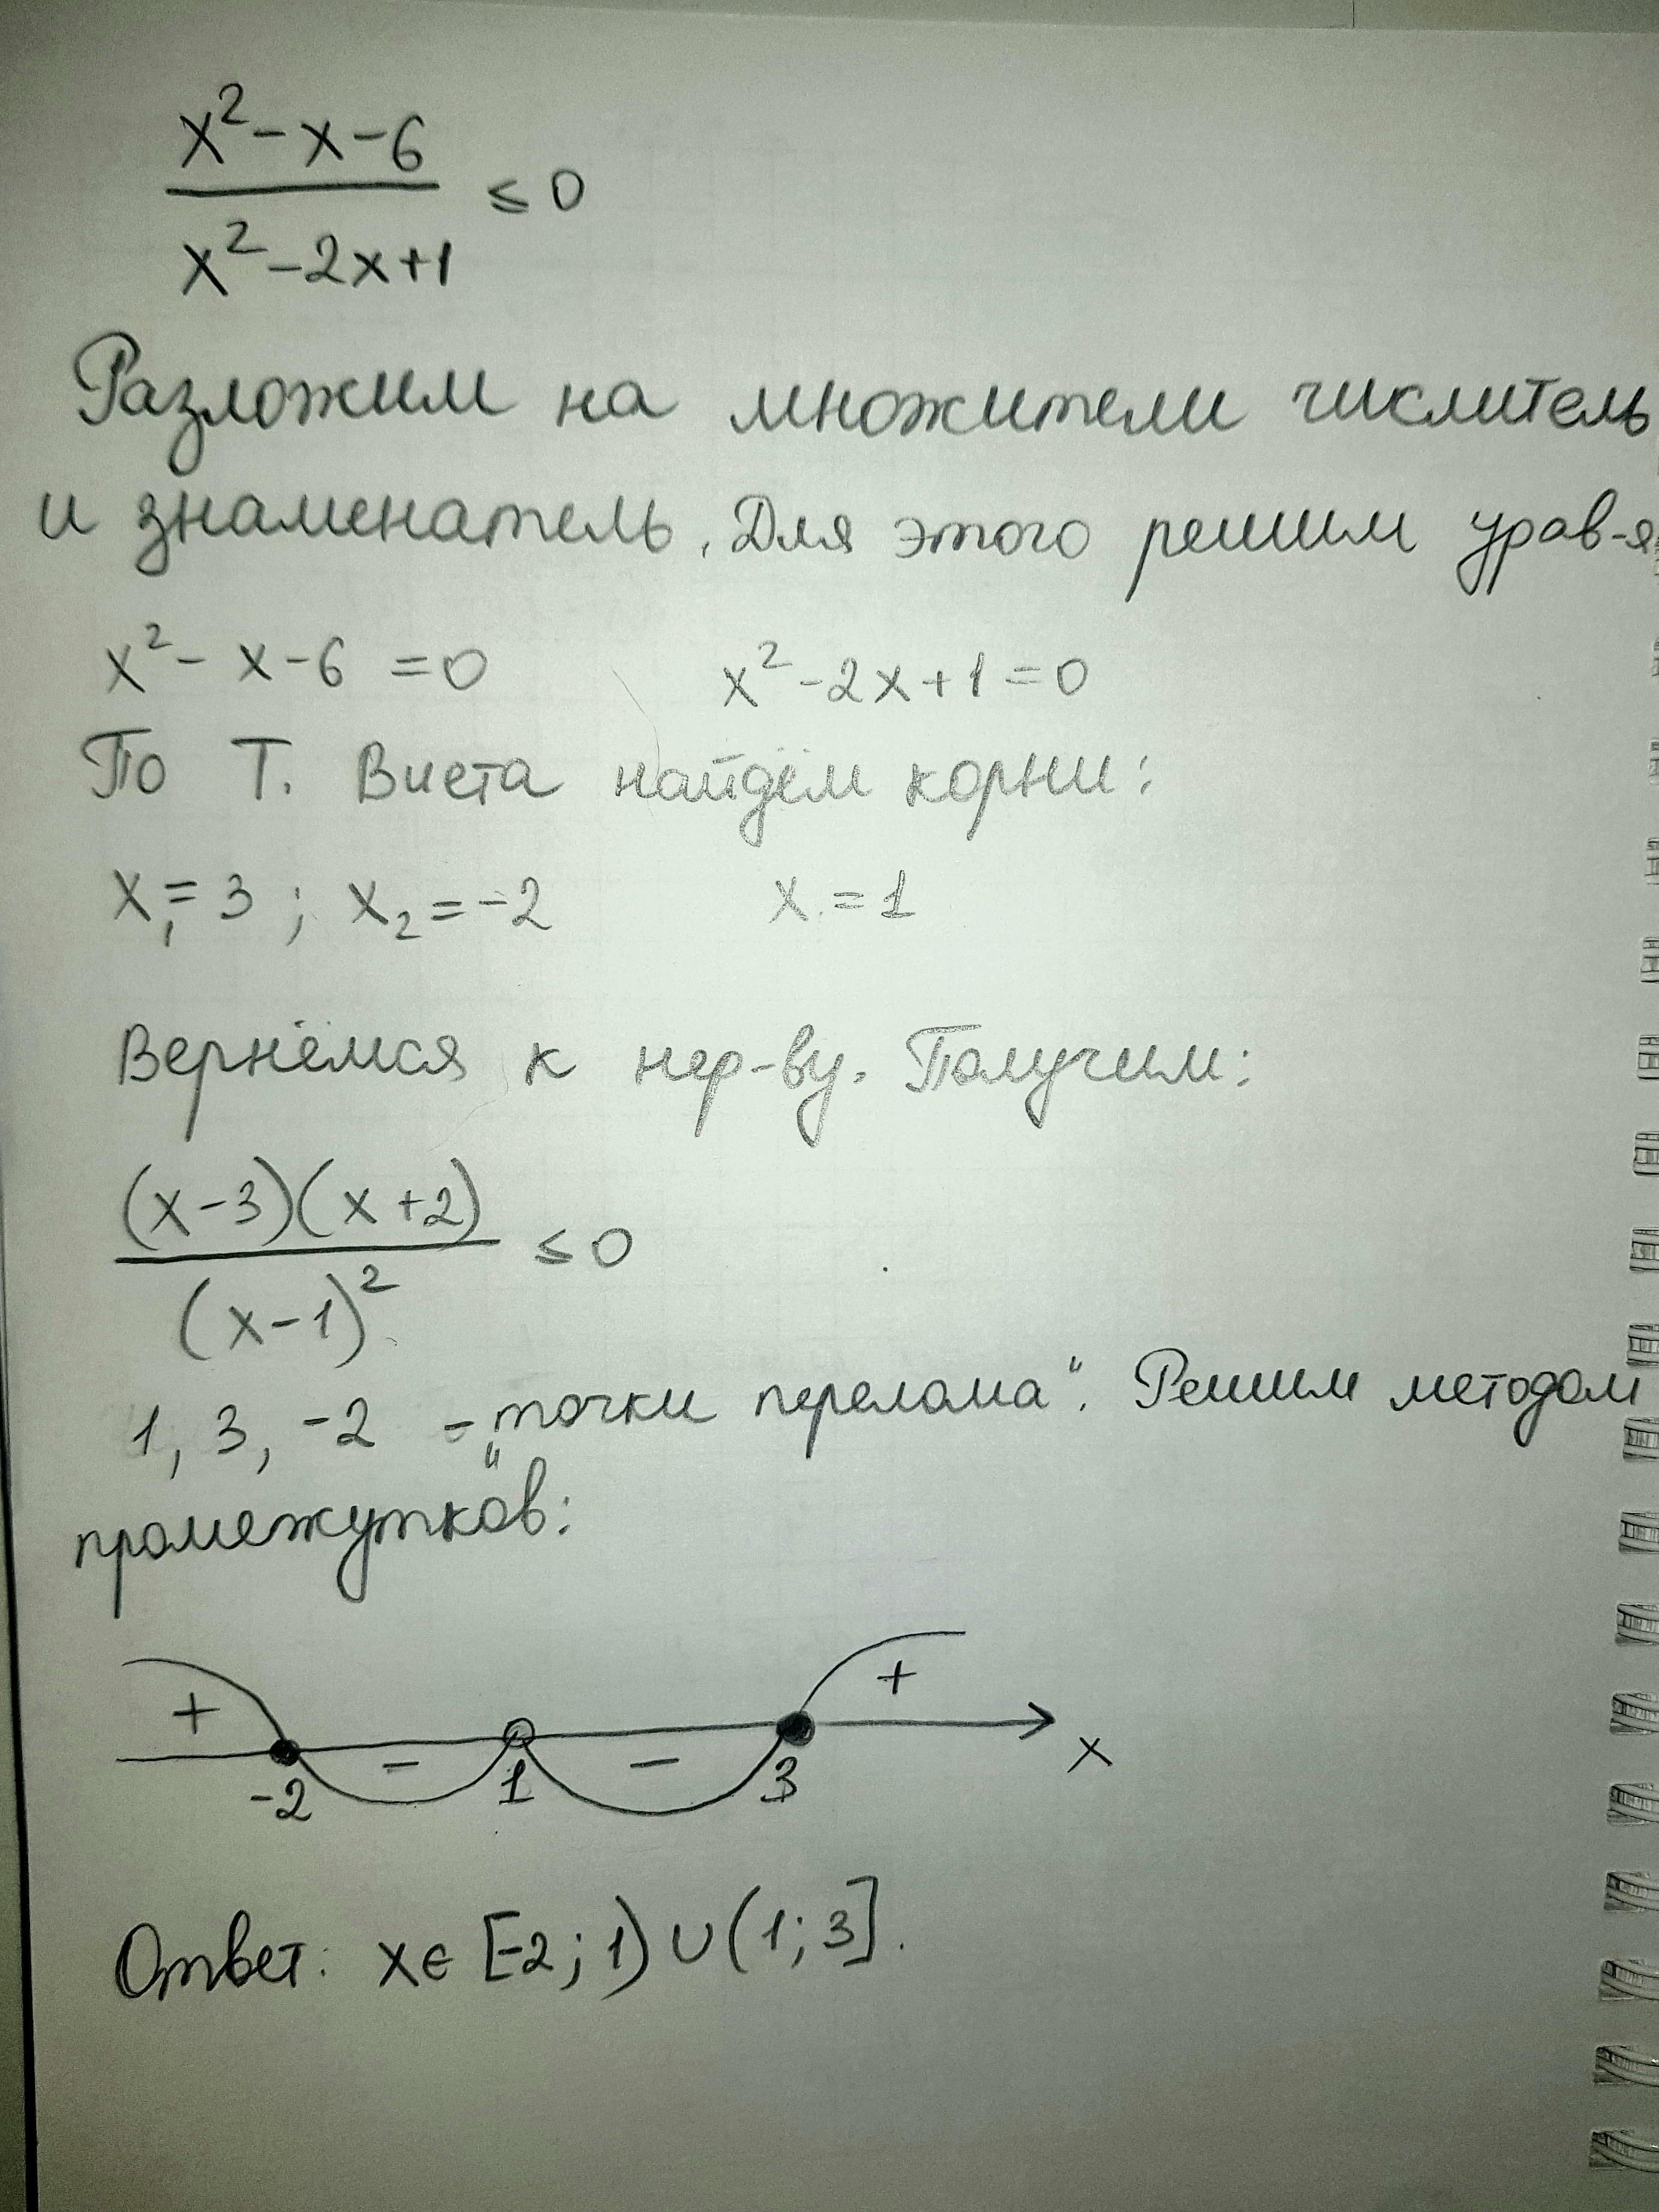 x² - x - 6
―――――― ≤ 0
x² - 2x + 1
Разложим на множители числитель
и знаменатель. Для этого решим урав-я
x² - x - 6 = 0 x² - 2x + 1 = 0
По Т. Виета найдём корни:
x₁ = 3 ; x₂ = -2 x = 1
Вернёмся к нер-ву. Получим:
(x - 3)(x + 2)
―――――― ≤ 0
(x - 1)²
1, 3, -2 - „точки перелома“. Решим методом
промежутков:
+ - - +
-2 1 3 x
Ответ: x ∈ [-2; 1) ∪ (1; 3].